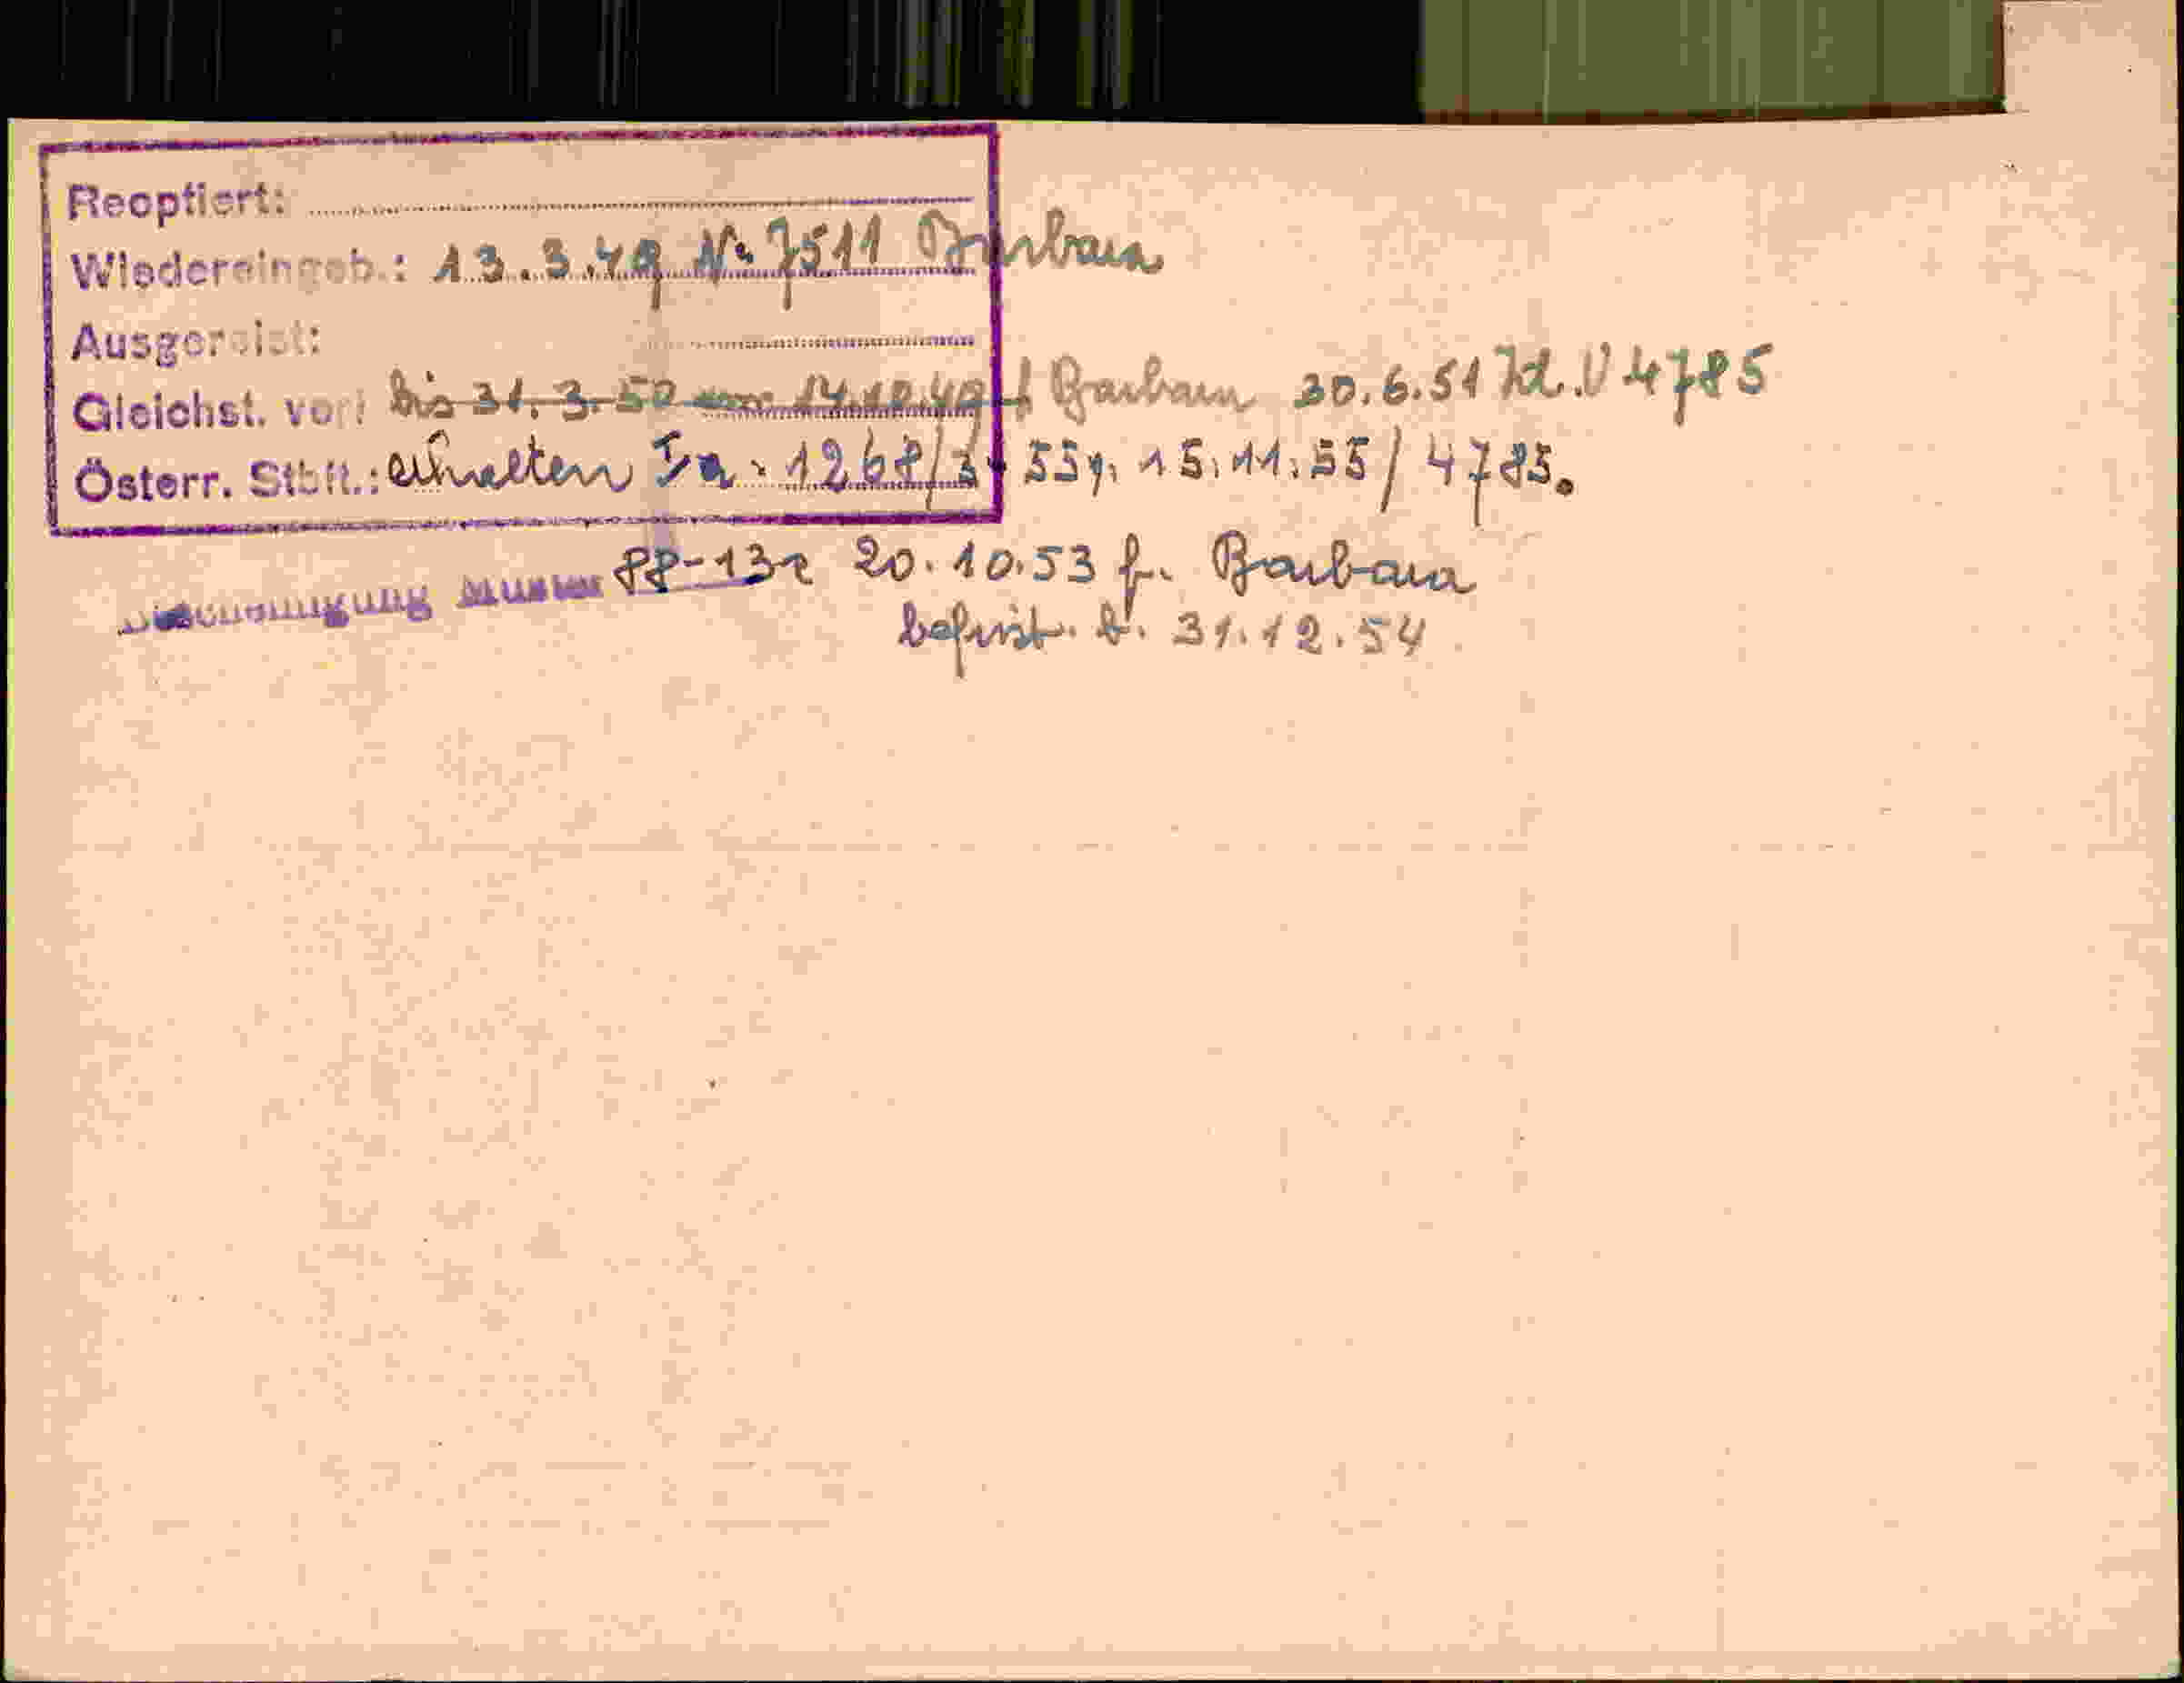 Reoptiert:
Wiedereingeb.: 13.3.49 Nr 7511 Barbara
Ausgereist:
Gleichst. vorl bis 31.3.50 vom 14.10.49 f Barbara 30.6.51 Kl.V 4785
Österr. Stbft.: erhalten Ia - 1268/3- 55 v. 15.11.55/4785.
88-13 20.10.53 f. Barbara
befrist. b. 31.12.54